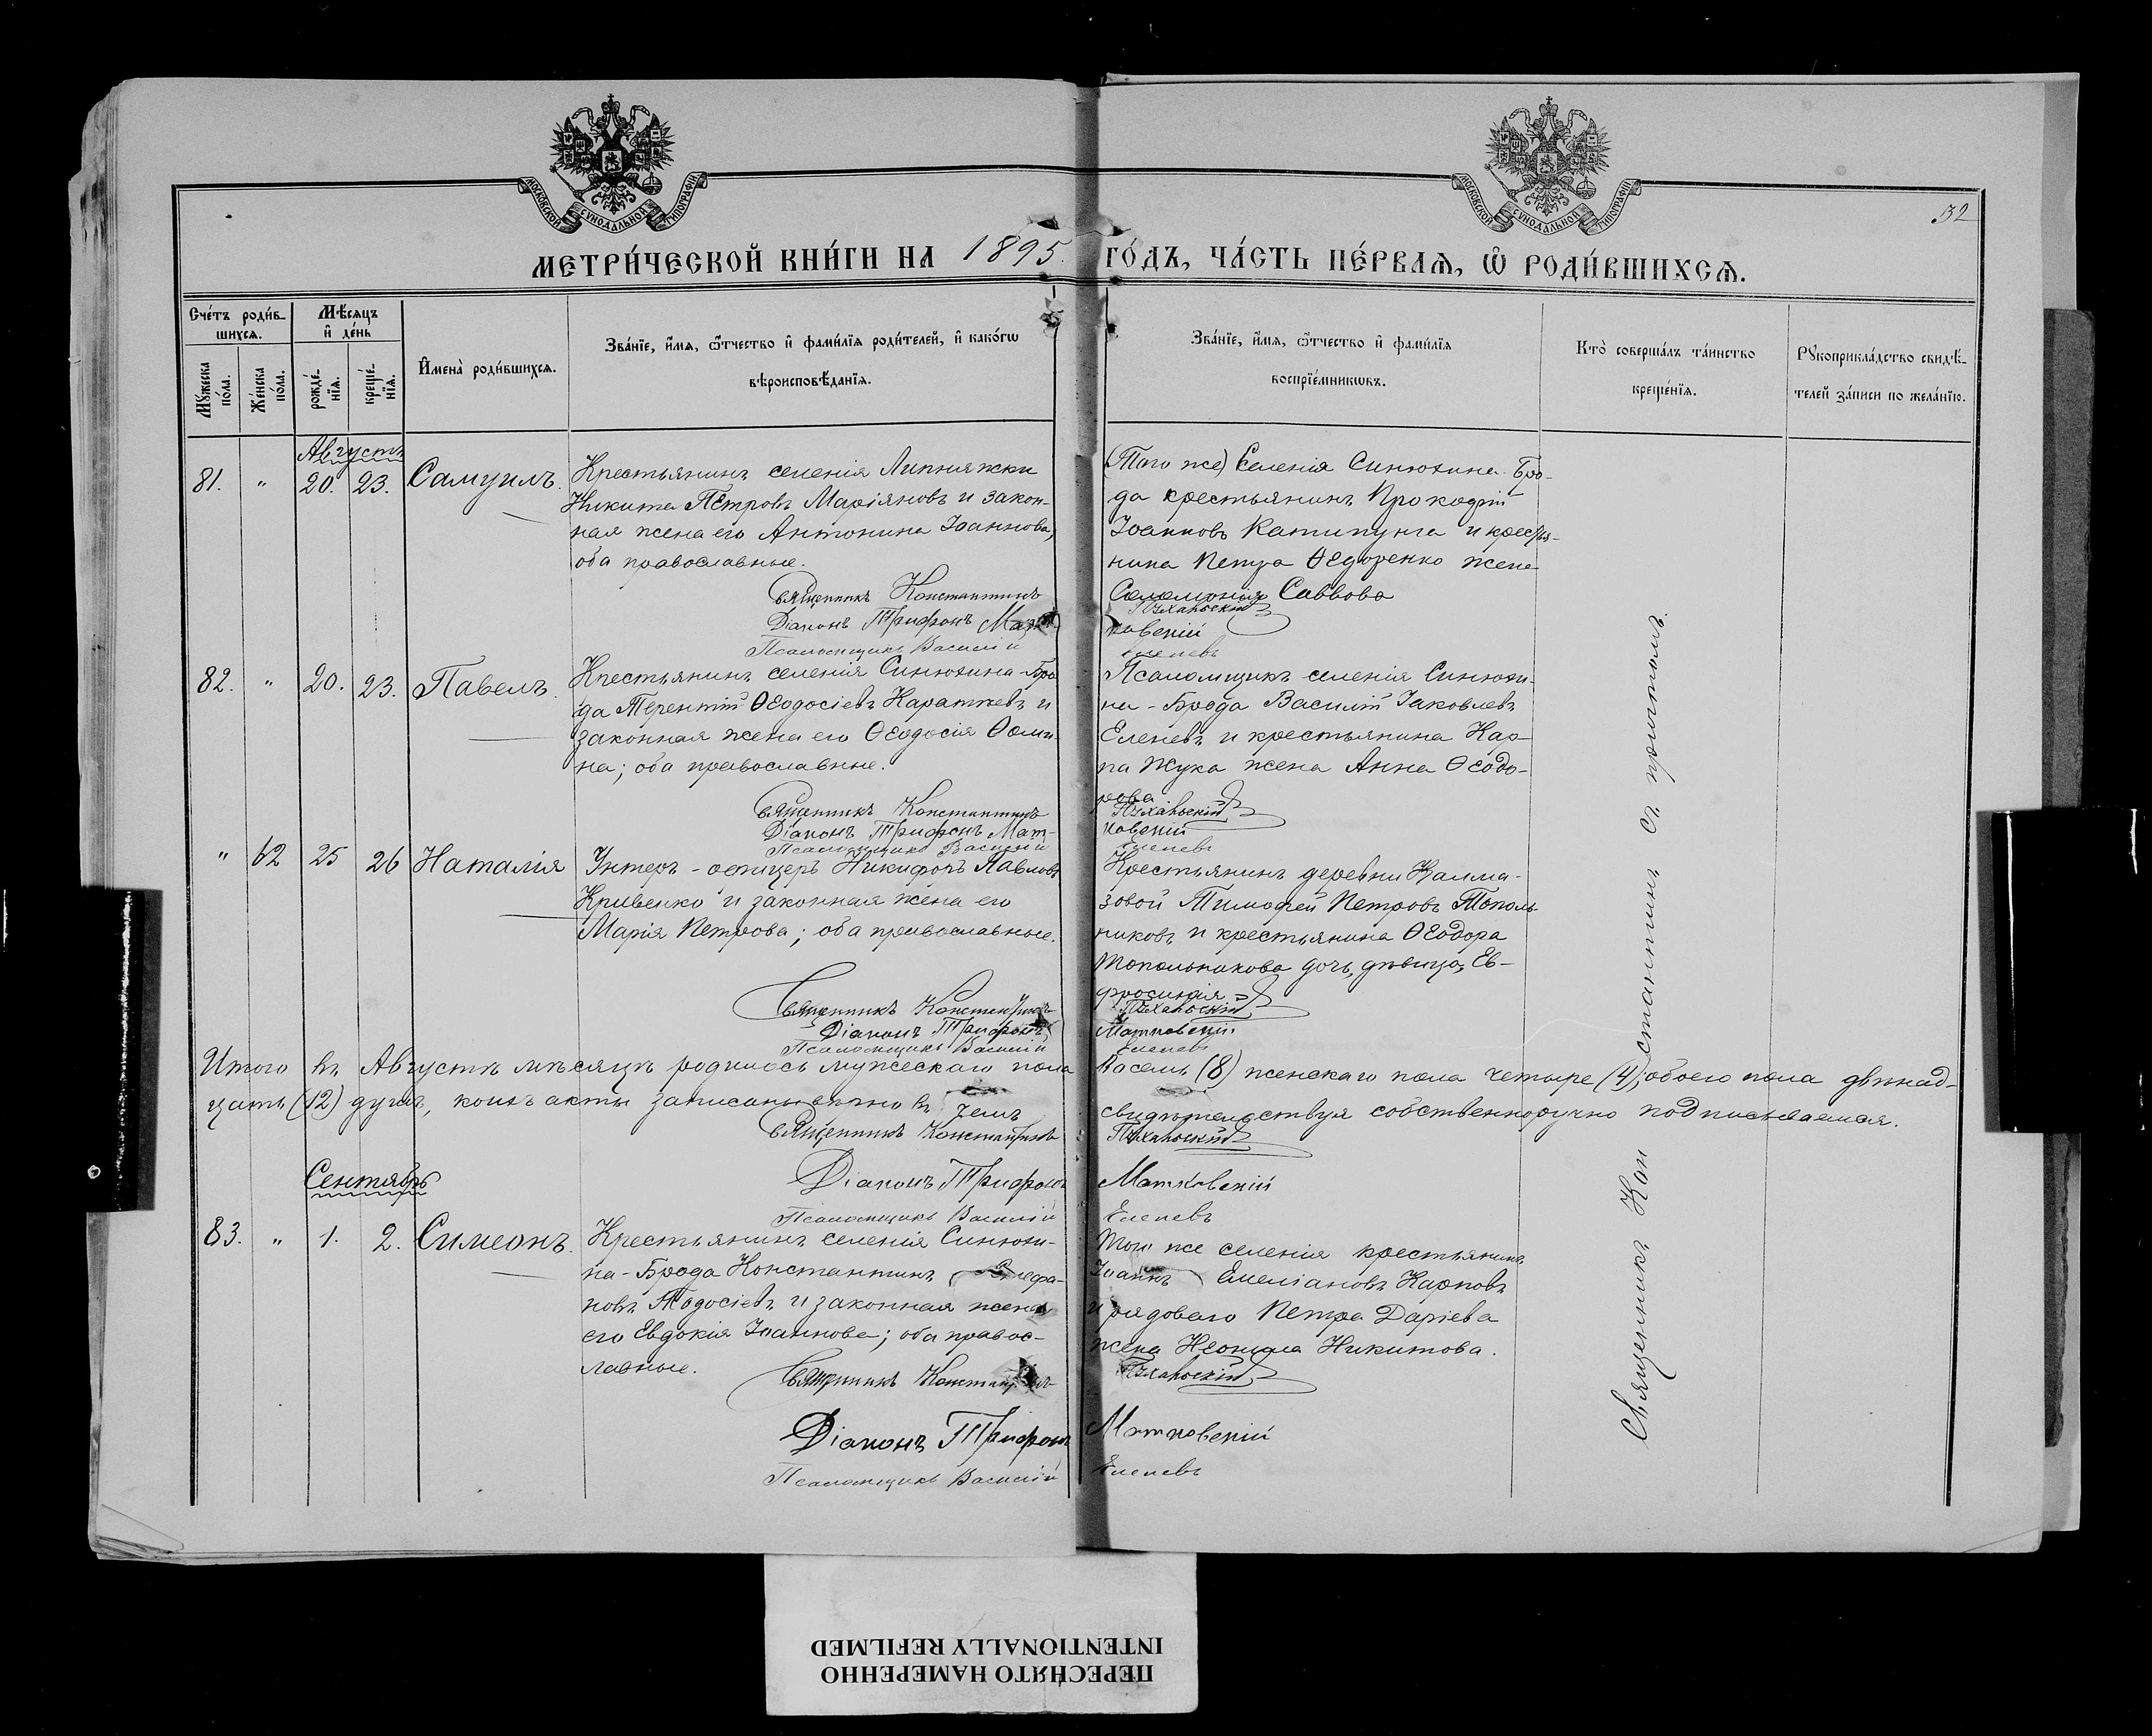 МОСКОВСКОЙ СУНОДАЛЬНОЙ ТИПОГРАФІИ
МОСКОВСКОЙ СУНОДАЛЬНОЙ ТИПОГРАФІИ
32
МЕТРИ́ЧЕСКОЙ КНИ́ГИ НА 1895. ГО́ДЪ, ЧА́СТЬ ПЕ́РВАѦ, Ѡ РОДИ́ВШИХСѦ.
Сче́тъ роди́в-
шихсѧ.
Мѣ́сѧцъ
и де́нь
Мꙋ́жеска по́ла.
Же́нска по́ла.
рожде́-
нїѧ.
креще́-
нїѧ.
Имена̀ роди́вшихсѧ.
Зва́нїе, и́мѧ, ѻ́тчество и фами́лїѧ роди́телей, и како́гѡ
вѣроисповѣ́данїѧ.
Зва́нїе, и́мѧ, ѻ́тчество и фами́лїѧ
воспрїе́мникѡвъ.
Кто̀ соверша́лъ та́инство
креще́нїѧ.
Рꙋкоприкла́дство свидѣ́-
телей за́писи по жела́нїю.
Августъ
81. " 20. 23. Самуилъ.
Крестьянинъ селенія Липняжки
Никита Петровъ Маріяновъ и закон-
ная жена его Антонина Іоаннова,
оба православные.
Священникъ Константинъ
Діаконъ Трифонъ
Псаломщикъ Василій
(Того же) Селенія Синюхина-Бро-
да крестьянинъ Прокофій
Іоанновъ и крестья-
нина Петра Ѳедоренко жена
Саввова
ковскій
Еленевъ
82. " 20. 23. Павелъ.
Крестьянинъ селенія Синюхина-Бро-
да Терентій Ѳеодосіевъ и
законная жена его Ѳеодосія Ѳоми-
на; оба православные.
Священникъ Константинъ
Діаконъ Трифонъ Мат-
Псаломщикъ Василій
Псаломщикъ селенія Синюхи-
на-Брода Василій Іаковлевъ
Еленевъ и крестьянина Кар-
па Жука жена Анна Ѳеодо-
рова
ковскій
Еленевъ
" 62 25 26 Наталія
Унтеръ-офицеръ Никифоръ Павловъ
Кривенко и законная жена его
Марія Петрова; оба православные.
Священникъ Константинъ
Діаконъ Трифонъ
Псаломщикъ Василій
Крестьянинъ деревни
Тимофей Петровъ Тополь-
никовъ и крестьянина Ѳеодора
Топольникова дочь, дѣвица, Ев-
фросинія
Матковскій
Еленевъ
Итого въ Августѣ мѣсяцѣ родилось мужескаго пола восемь (8) женскаго пола четыре (4), обоего пола двѣнад-
цать (12) душъ, коихъ акты записаны вѣрно въ чемъ свидѣтельствуя собственноручно подписываемся.
Священникъ Константинъ
Діаконъ Трифонъ Матковскій
Псаломщикъ Василій Еленевъ
Сентябрь
83. " 1. 2. Симеонъ.
Крестьянинъ селенія Синюхи-
на-Брода Константинъ Стефа-
новъ Тодосіевъ и законная жена
его Евдокія Іоаннова; оба правос-
лавные.
Священникъ Константинъ
Діаконъ Трифонъ
Псаломщикъ Василій
Того же селенія крестьянинъ
Іоаннъ Емеліановъ Карповъ
и рядового Петра Даріева
жена Неонила Никитова.
Матковскій
Еленевъ
Священникъ Константинъ съ причтомъ.
ПЕРЕСНЯТО НАМЕРЕННО
INTENTIONALLY REFILMED